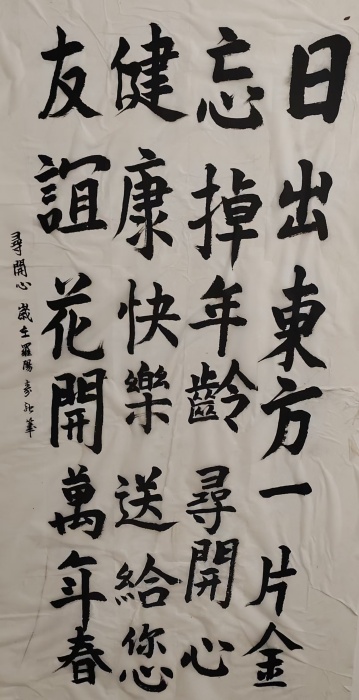 日出東方一片金
忘掉年齡尋開心
健康快樂送給您
友誼花開萬年春
尋開心 歲在羅陽